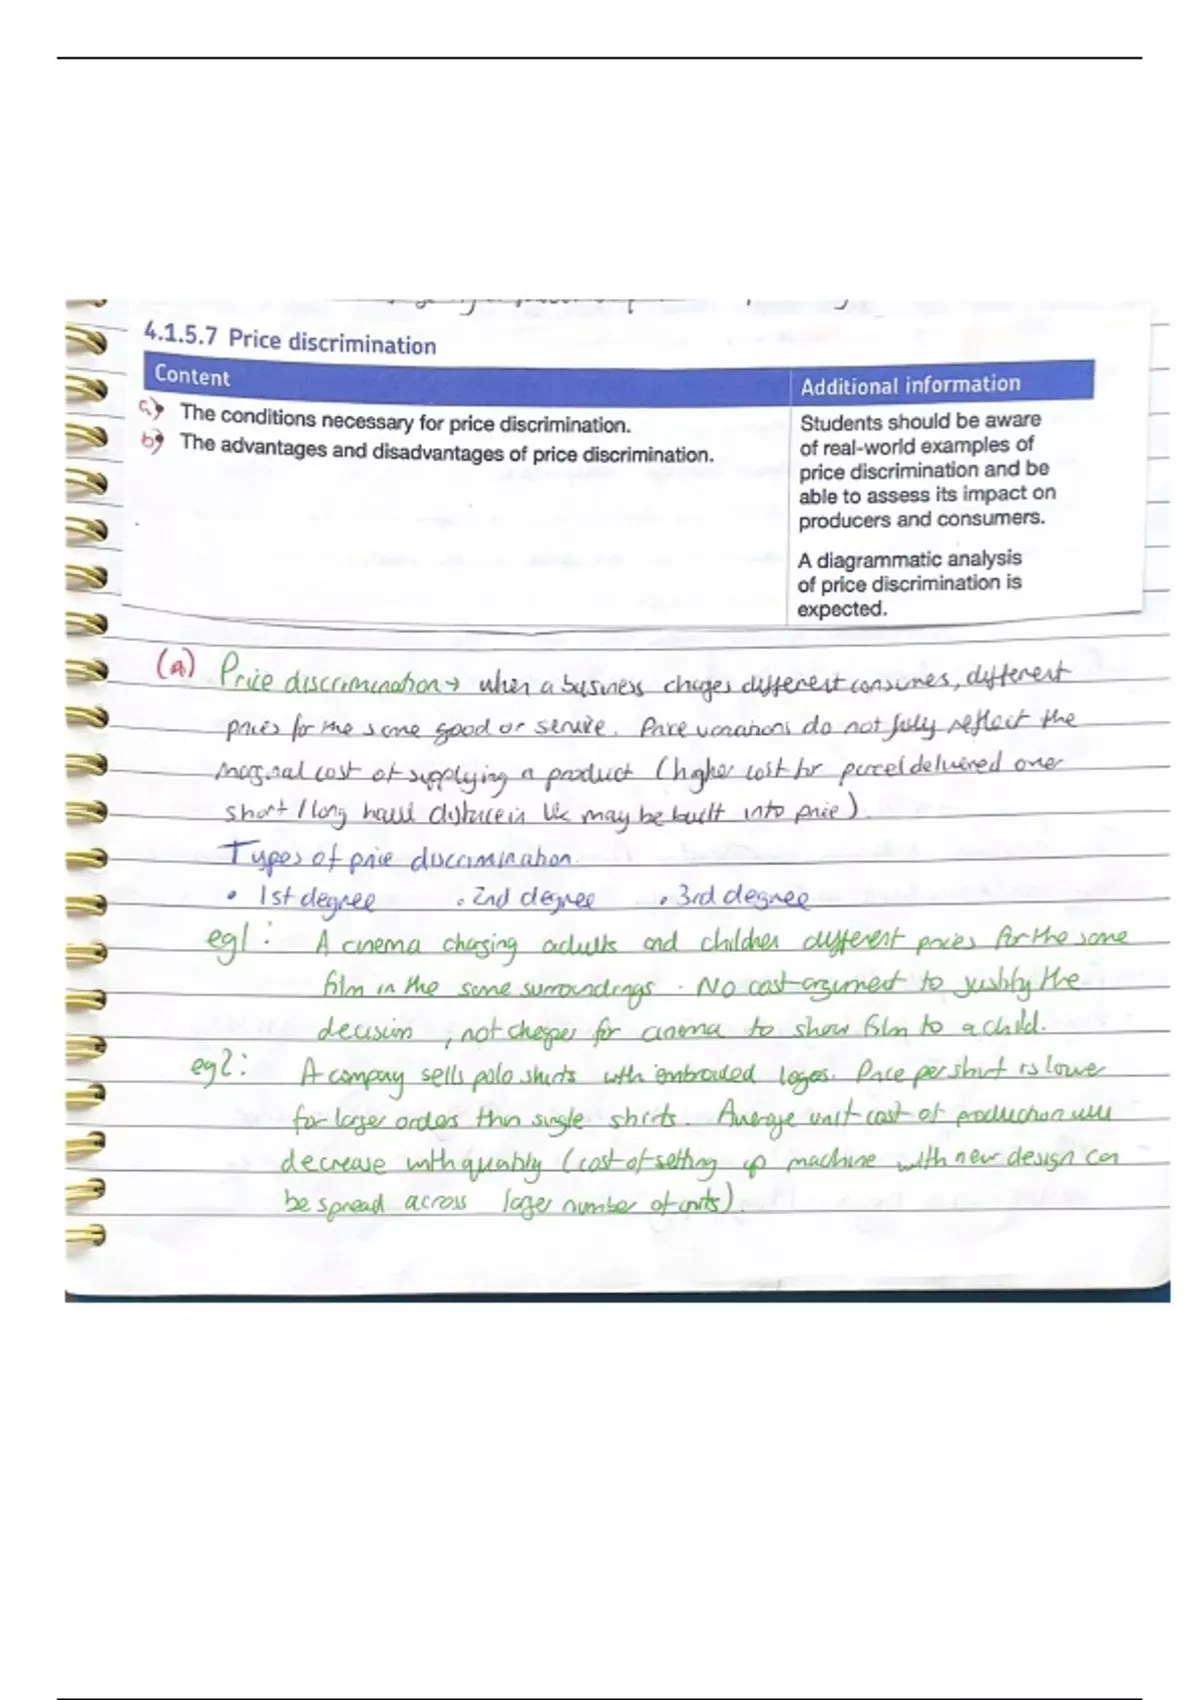 4.1.5.7 Price discrimination
Content
Additional information
a) The conditions necessary for price discrimination.
b) The advantages and disadvantages of price discrimination.
Students should be aware
of real-world examples of
price discrimination and be
able to assess its impact on
producers and consumers.
A diagrammatic analysis
of price discrimination is
expected.
(a) Price discrimination → when a business charges different consumes, different
prices for the same good or service. Price variations do not fully reflect the
marginal cost of supplying a product (higher cost for parcel delivered over
short / long haul distance in UK may be built into price).
Types of price discrimination.
• 1st degree • 2nd degree • 3rd degree
eg1: A cinema charging adults and children different prices for the same
film in the same surroundings. No cost-argument to justify the
decision, not cheaper for cinema to show film to a child.
eg2: A company sells polo shirts with embroided logos. Price per shirt is lower
for larger orders than single shirts. Average unit cost of production will
decrease with quantity (cost of setting up machine with new design can
be spread across larger number of units).